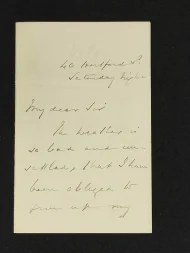 40 Hertford St
Saturday Night
My dear Sir
The weather is
so bad and
that I have
been obliged to
give up my